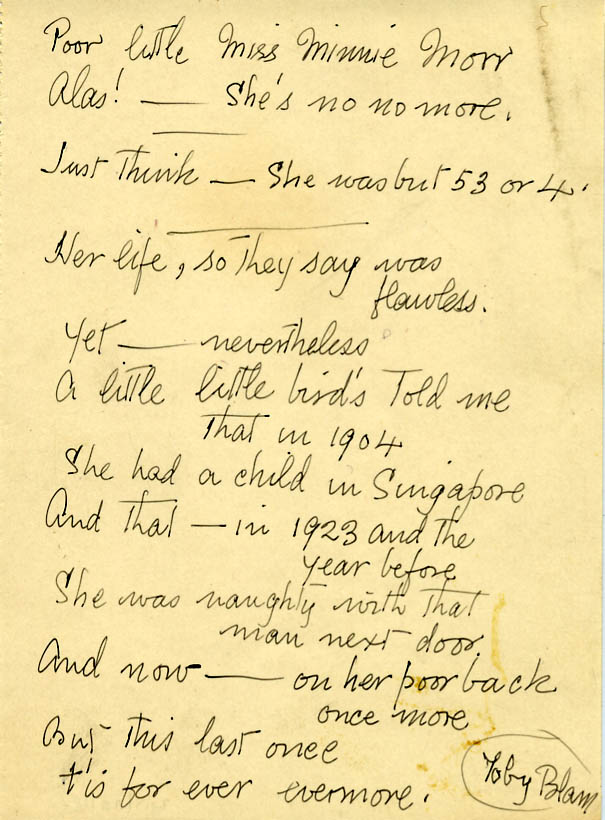 Poor little Miss Minnie Morr
Alas! — She's no no more.
Just Think — She was but 53 or 4.
Her life, so they say was
flawless.
Yet — nevertheless
A little little bird's Told me
That in 1904
She had a child in Singapore
And that — in 1923 and the
year before
She was naughty with that
man next door.
And now — on her poor back
once more
But this last once
t'is for ever evermore.
Toby Blam